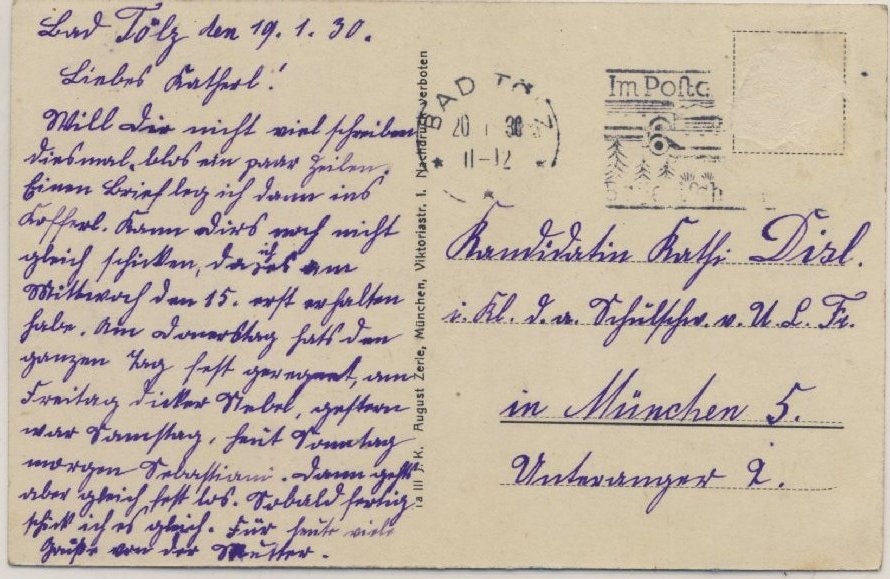 Bad Tölz den 19. 1. 30.
Liebes Katherl!
Will Dir nicht viel schreiben
diesmal, blos ein paar Zeilen.
Einen Brief leg ich dann ins
Kofferl. Kann Dirs noch nicht
gleich schicken, da ich es am
Mittwoch den 15. erst erhalten
habe. Am Donerstag hats den
ganzen Tag fest geregnet, am
Freitag dicker Nebel, gestern
war Samstag, heut Sonntag
morgen Sebastiani. Dann gehts
aber gleich fest los. Sobald fertig
schick ich es gleich. Für heute viele
Grüße von der Mutter.
1a III J. K. August Zerle, München, Viktoriastr. 1. Nachdruck verboten
BAD TÖLZ
20 1 30
11-12
Im Posta
Kandidatin Kathi Disl.
i. Kl. d. a. Schulschw. v. U. L. Fr.
in München 5.
Unteranger 2.